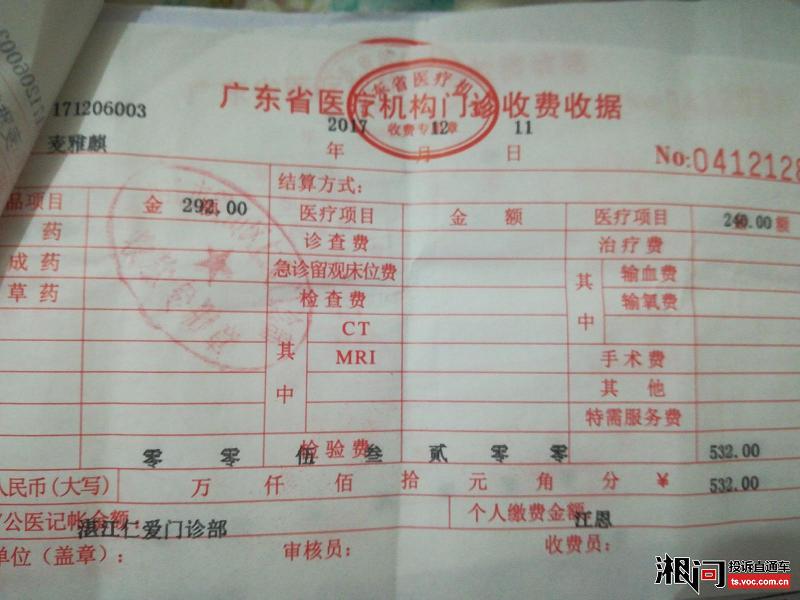 171206003
广东省医疗机构门诊收费收据
收费专用章
麦雅麒
2017 年 12 月 11 日
No:0412128
结算方式:
品项目 金 292.00 医疗项目 金 额 医疗项目 240.00 额
药 诊查费 治疗费
成药 急诊留观床位费 其中 输血费
草药 检查费 输氧费
其中 CT
MRI 手术费
其 他
特需服务费
检验费
零 零 伍 叁 贰 零 零 532.00
人民币(大写) 万 仟 佰 拾 元 角 分 ¥ 532.00
公医记帐金额: 个人缴费金额
湛江仁爱门诊部 江恩
单位(盖章): 审核员: 收费员:
湘问 投诉直通车
ts.voc.com.cn